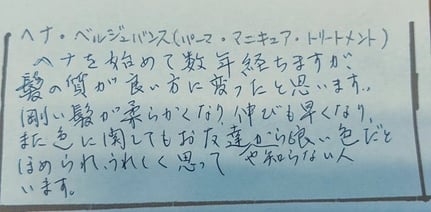 ヘナ・ベルジュバンス(パーマ・マニキュア・トリートメント)
ヘナを始めて数年経ちますが、
髪の質が良い方に変ったと思います。
剛い髪が柔らかくなり、伸びも早くなり、
また色に関してもお友達から良い色だと
ほめられ、うれしく思って や知らない人
います。